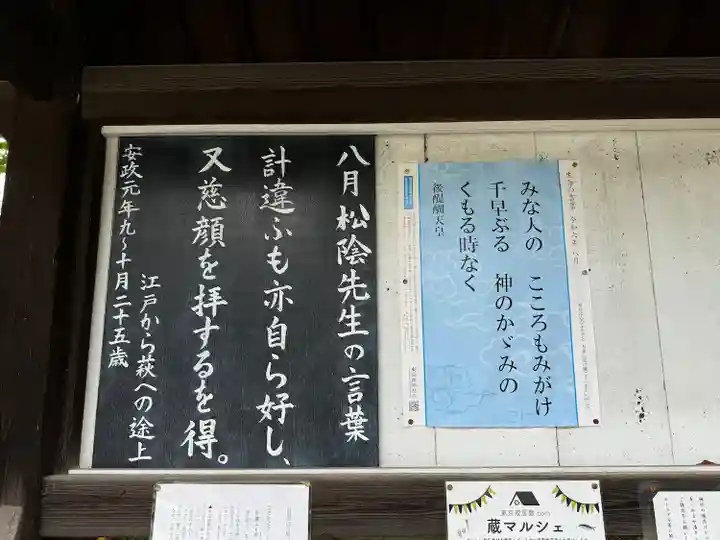 八月 松陰先生の言葉
計違ふも亦自ら好し、
又慈顔を拝するを得。
江戸から萩への途上
安政元年九〜十月二十五歳
生命の言葉 令和六年 八月
みな人の こころもみがけ
千早ぶる 神のかゞみの
くもる時なく
後醍醐天皇
蔵マルシェ